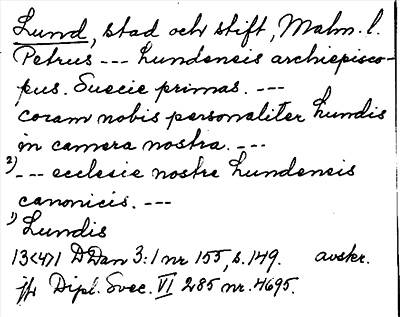 Lund, stad och stift, Malm. l.
Petrus --- Lundensis archiepisco-
pus. Suecie primas. ---
coram nobis personaliter Lundis
in camera nostra. ---
2) --- ecclesie nostre Lundensis
canonicis. ---
1) Lundis
13<47> DDan 3:1 nr 155, s. 149. avskr.
jfr Dipl. Svec. VI 285 nr. 4695.